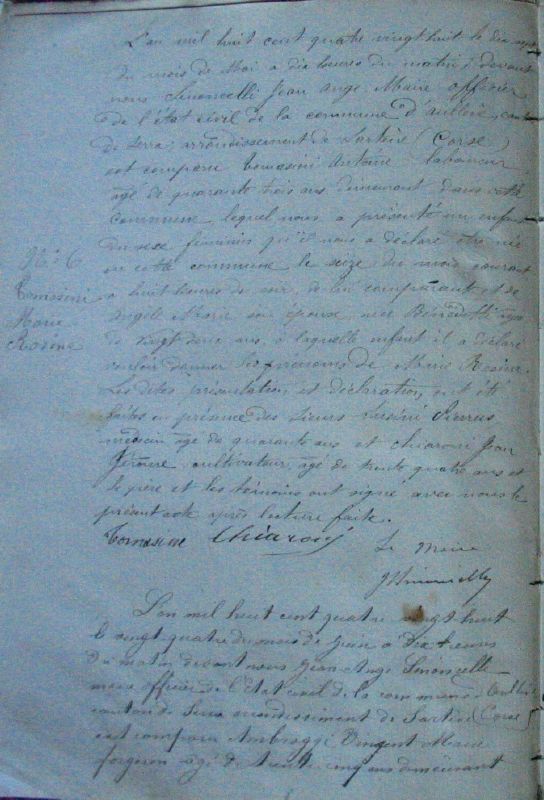 L'an mil huit cent quatre vingt huit le dix
du mois de Mai à dix heures du matin, devant
nous Simoncelli Jean Ange Maire officier
de l'état civil de la commune d'Aullène, canton
de Serra, arrondissement de Sartène (Corse)
est comparu Tomasini Antoine laboureur
âgé de quarante trois ans demeurant dans cette
commune, lequel nous a présenté un enfant
du sexe féminin qu'il nous a déclaré être né
en cette commune le seize du mois courant
N° 6
Tomasini
Marie
Rosine
à huit heures du soir, de lui comparant et de
Marie son épouse, née Benedetti
de vingt deux ans, à laquelle enfant il a déclaré
vouloir donner les prénoms de Marie Rosine.
Les dites présentation et déclaration, ont été
faites en présence des Sieurs Pierre
médecin âgé de quarante ans et Chiaroni Jean
Jérôme, cultivateur, âgé de trente quatre ans et
le père et les témoins ont signé avec nous le
présent acte après lecture faite.
Chiaroni
Le Maire
L'an mil huit cent quatre vingt huit
le vingt quatre du mois de Juin à dix heures
du matin devant nous Jean Ange Simoncelli
maire officier de l'état civil de la commune d'Aullène
canton de Serra arrondissement de Sartène (Corse)
est comparu Ambroggi Vincent
forgeron âgé de trente cinq ans demeurant